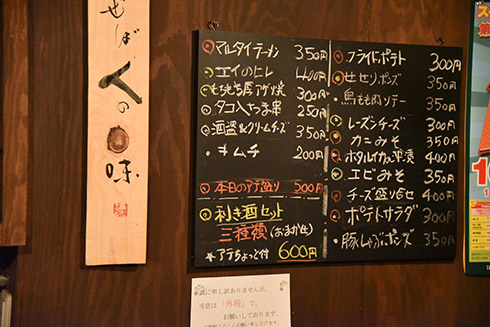 せば人の味
マルタイラーメン 350円
エイのヒレ 400円
300円
タコ入さつま串 250円
酒盗&クリームチーズ 350円
キムチ 200円
本日のアテ盛り 500円
利き酒セット
三種類(おまかせ)
*アテちょっと付 600円
フライドポテト 300円
セセリポンズ 350円
鳥もも肉ソテー 350円
レーズンチーズ 300円
カニみそ 350円
ホタルイカ沖漬 400円
エビみそ 350円
チーズ盛り合せ 400円
ポテトサラダ 300円
豚しゃぶポンズ 350円
誠に申し訳ありませんが、
当店は「外税」で、
お願いしております。